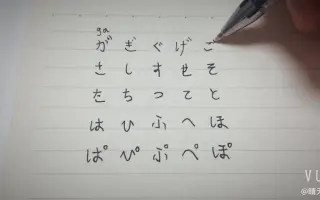 ga
が ぎ ぐ げ こ
さ し す せ そ
た ち つ て と
は ひ ふ へ ほ
ぱ ぴ ぷ ぺ ぽ
VU
@晴天